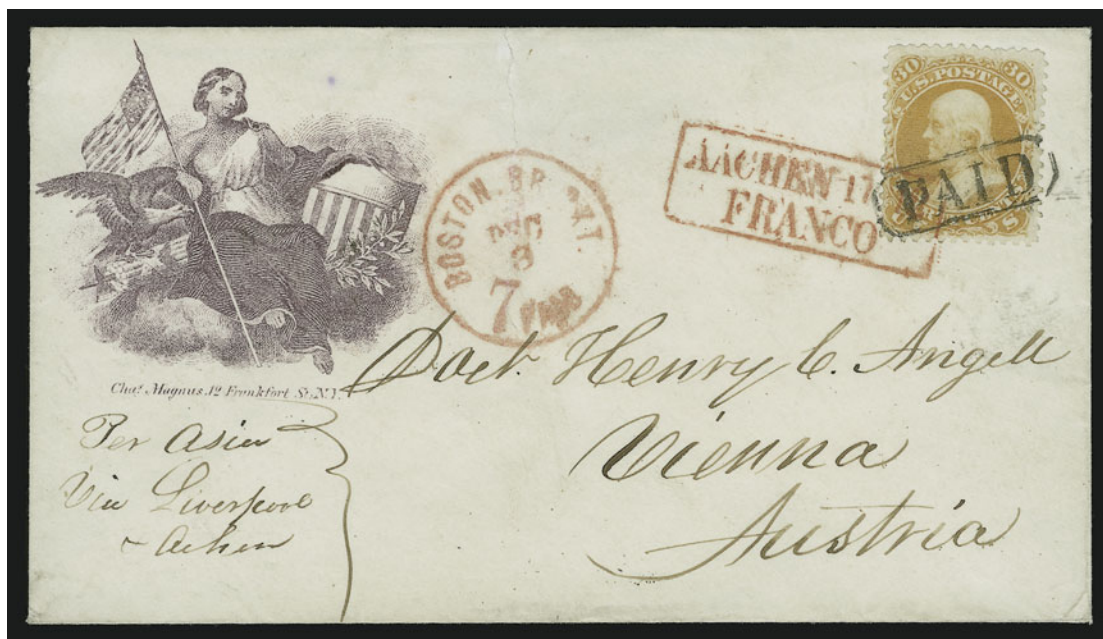 30 30
U.S. POSTAGE
PAID
AACHEN 17
FRANCO
BOSTON. BR. PKT.
DEC
3
7
PAID
Chas. Magnus. 12 Frankfort St. N.Y.
Doct. Henry C. Angell
Vienna
Austria
Per Asia
Via Liverpool
& Achen